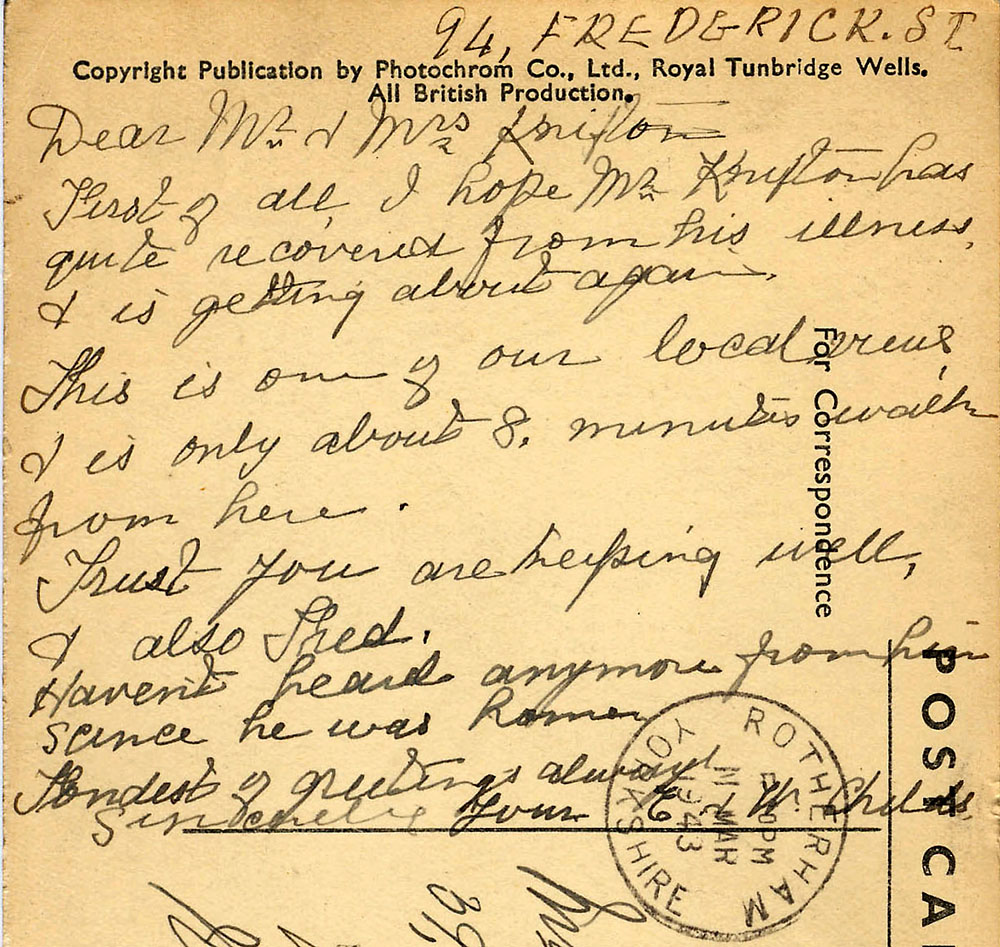 94, FREDERICK. ST
Copyright Publication by Photochrom Co., Ltd., Royal Tunbridge Wells.
All British Production.
Dear Mr & Mrs Knifton
First of all, I hope Mr Knifton has
quite recovered from his illness,
& is getting about again.
This is one of our local views,
& is only about 8. minutes walk
from here.
Trust you are keeping well,
& also Fred.
Haven't heard anymore from him
scince he was home.
Fondest of greetings always
Sincerely Your E & W.
For Correspondence
POST CA
ROTHERHAM
YORKSHIRE
PM
MAR
1943